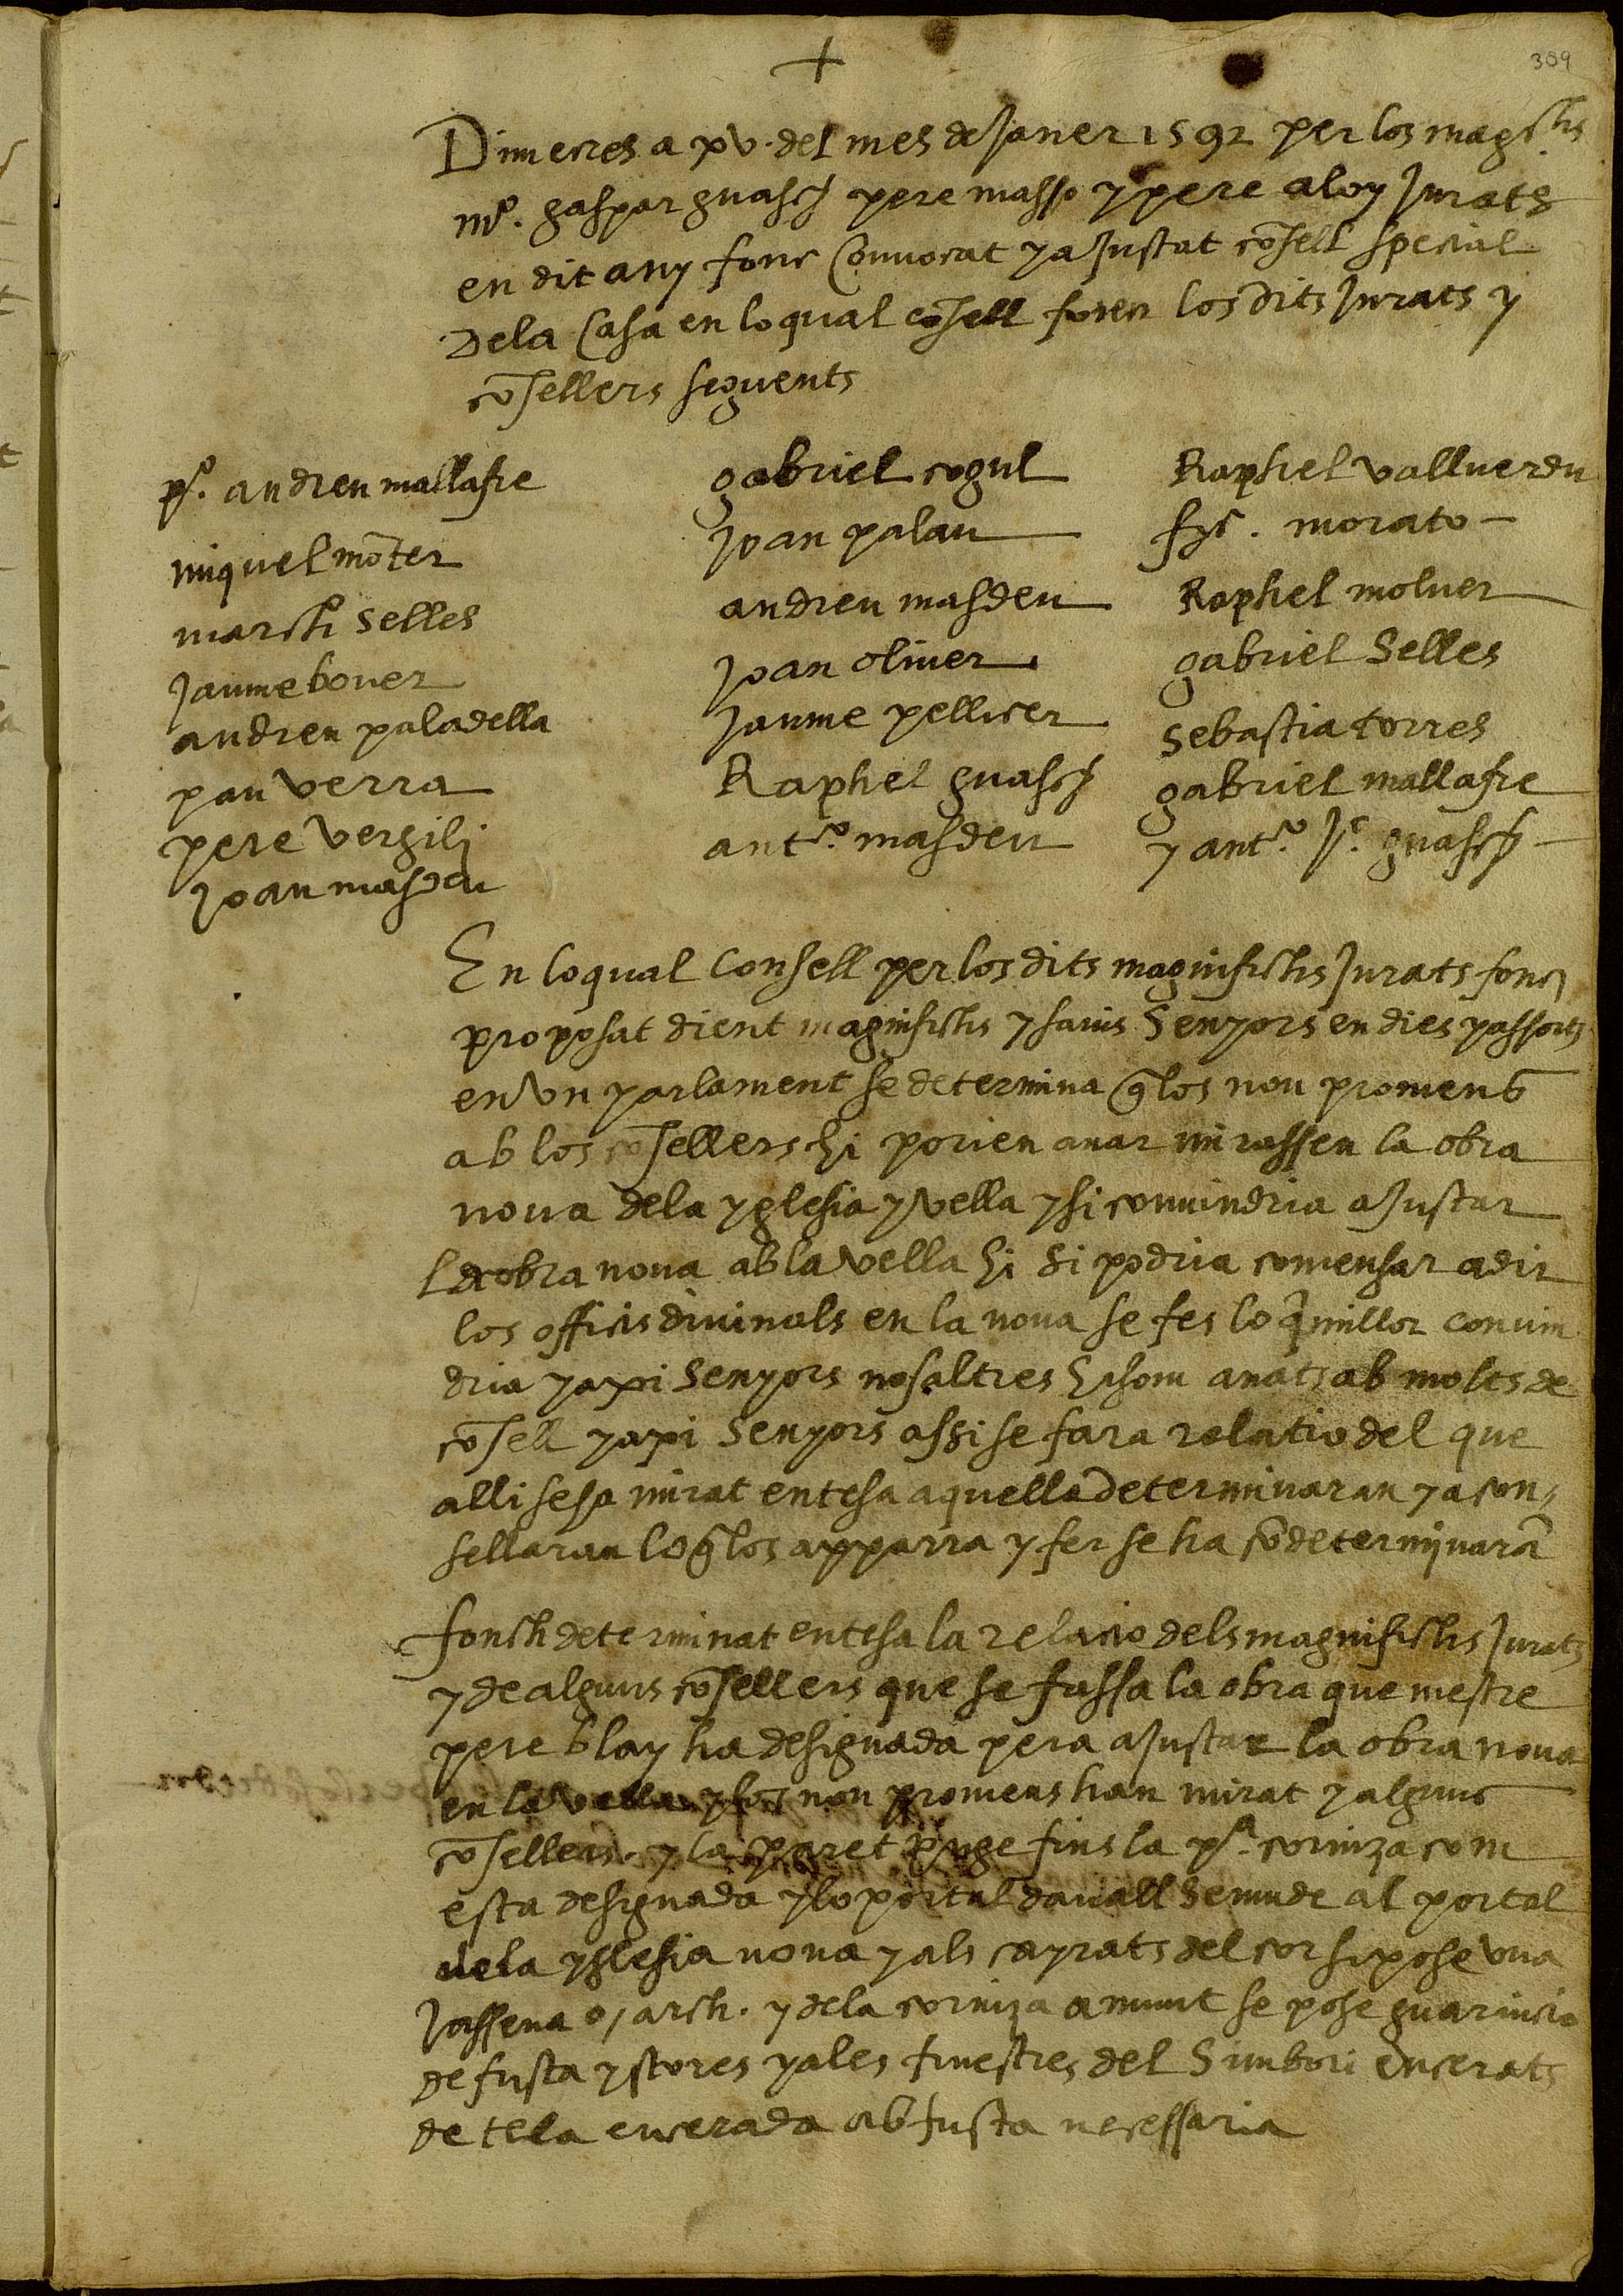 +
309
Dimecres a xv. del mes de Janer 1592 per los magchs
mº. gaspar guasch pere masso y pere aloy Jurats
en dit any fonc Convocat y aJustat cōsell special
dela Casa en lo qual cōsell foren los dits Jurats y
cōsellers seguents
pº. andreu mallafre
miquel mōter
march selles
Jaume bover
andreu paladella
pau verra
pere vergili
Joan masdeu
gabriel cogul
Joan palau
andreu masdeu
Joan oliver
Jaume pellicer
Raphel guasch
antº. masdeu
Raphel vallverdu
frc. morato
Raphel molner
gabriel Selles
Sebastia torres
gabriel mallafre
y antº. Jc. guasch
En loqual Consell per los dits magnifichs Jurats fonch
proposat dient magnifichs y savis Senyors en dies passats
en vn parlament se determina q̄ los nou promens
ab los cōsellers hi porien anar mirassen la obra
nova dela yglesia y vella y si convindria aJustar
La obra nova ab la vella hi si podria comensar a dir
los officis divinals en la nova se fes lo q̄ millor convin
dria y axi Senyors nosaltres hi som anats ab molts de
cōsell y axi Senyors assi se fara relatio del que
alli se ha mirat entesa aquella determinaran y acon,
sellaran lo q̄ los apparra y fer se ha cō determinarā
fonch determinat entesa la relacio dels magnifichs Jurats
y de alguns cōsellers que se fassa la obra que mestre
pere blay ha designada pera aJustar la obra nova
en la vella y los nou promens han mirat y alguns
cōsellers. y la paret puge fins la pª. corniza com
esta designada y lo portal davall se mude al portal
dela yglesia nova y als cayrats del cor si pose vna
Jassena o, arch. y dela corniza amunt se pose guarnicio
de fusta y stores y a les finestres del Simbori encerats
de tela encerada ab fusta necessaria